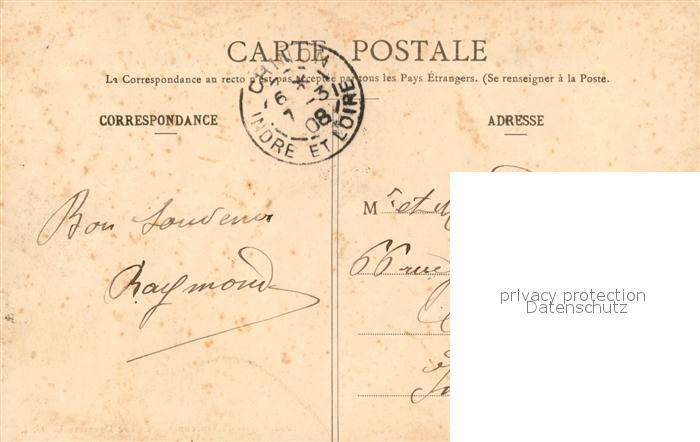 CARTE POSTALE
La Correspondance au recto n'est pas acceptée par tous les Pays Étrangers. (Se renseigner à la Poste.
CORRESPONDANCE
ADRESSE
CHINON
6 31
7 08
INDRE ET LOIRE
Bon Souvenir
Raymond
Mr et M
66 rue
privacy protection
Datenschutz